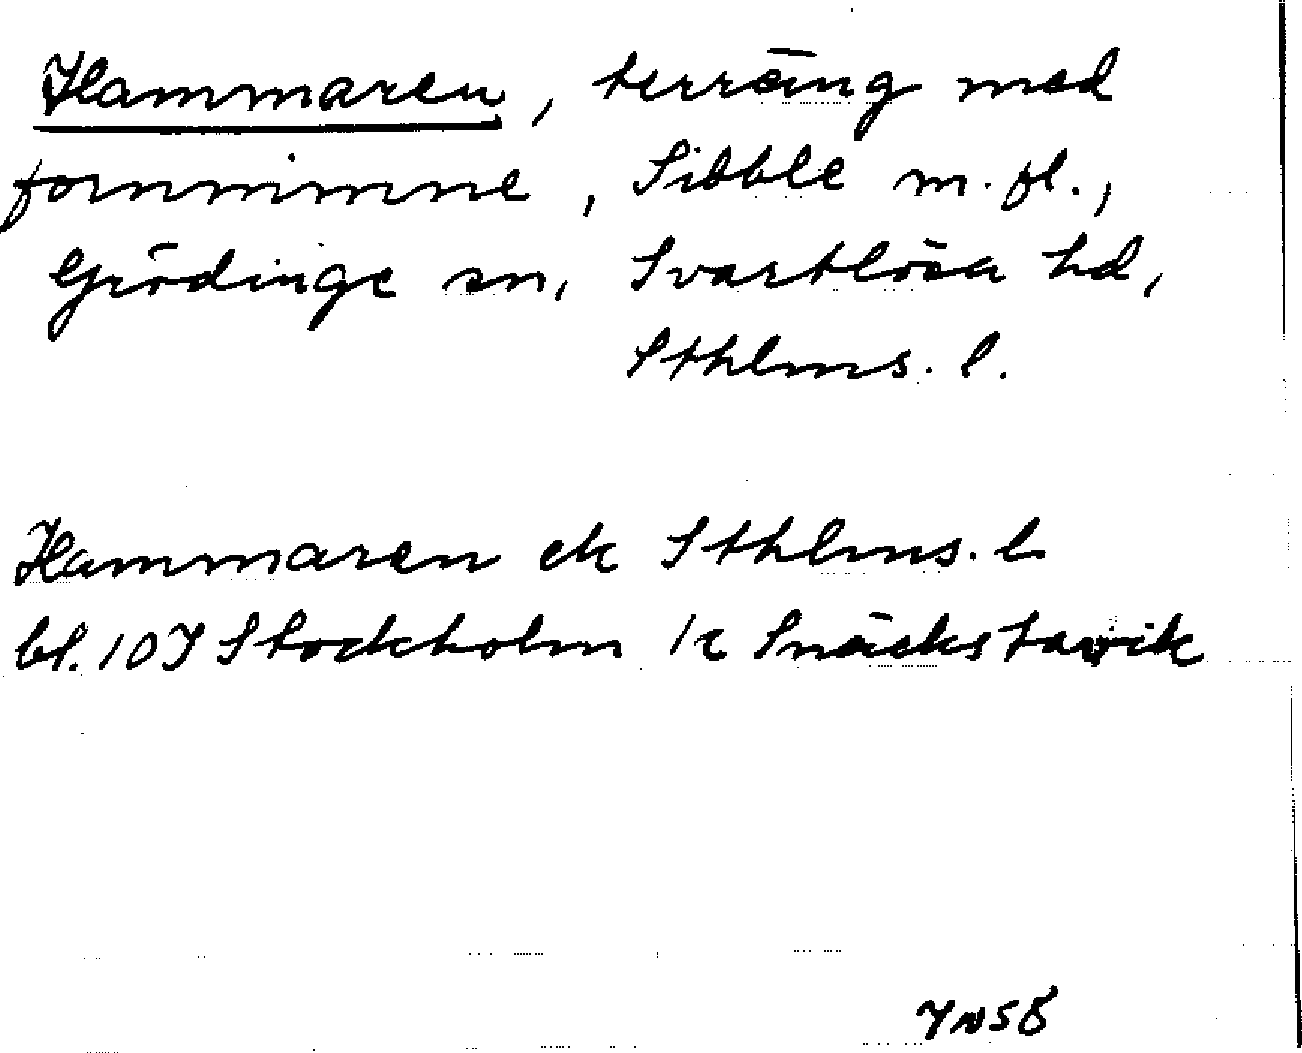 Hammaren, terräng med
fornminne, Sibble m.fl.,
Grödinge sn, Svartlösa hd,
Sthlms. l.
Hammaren ek Sthlms. l.
bl. 10 I Stockholm
Snäckstavik